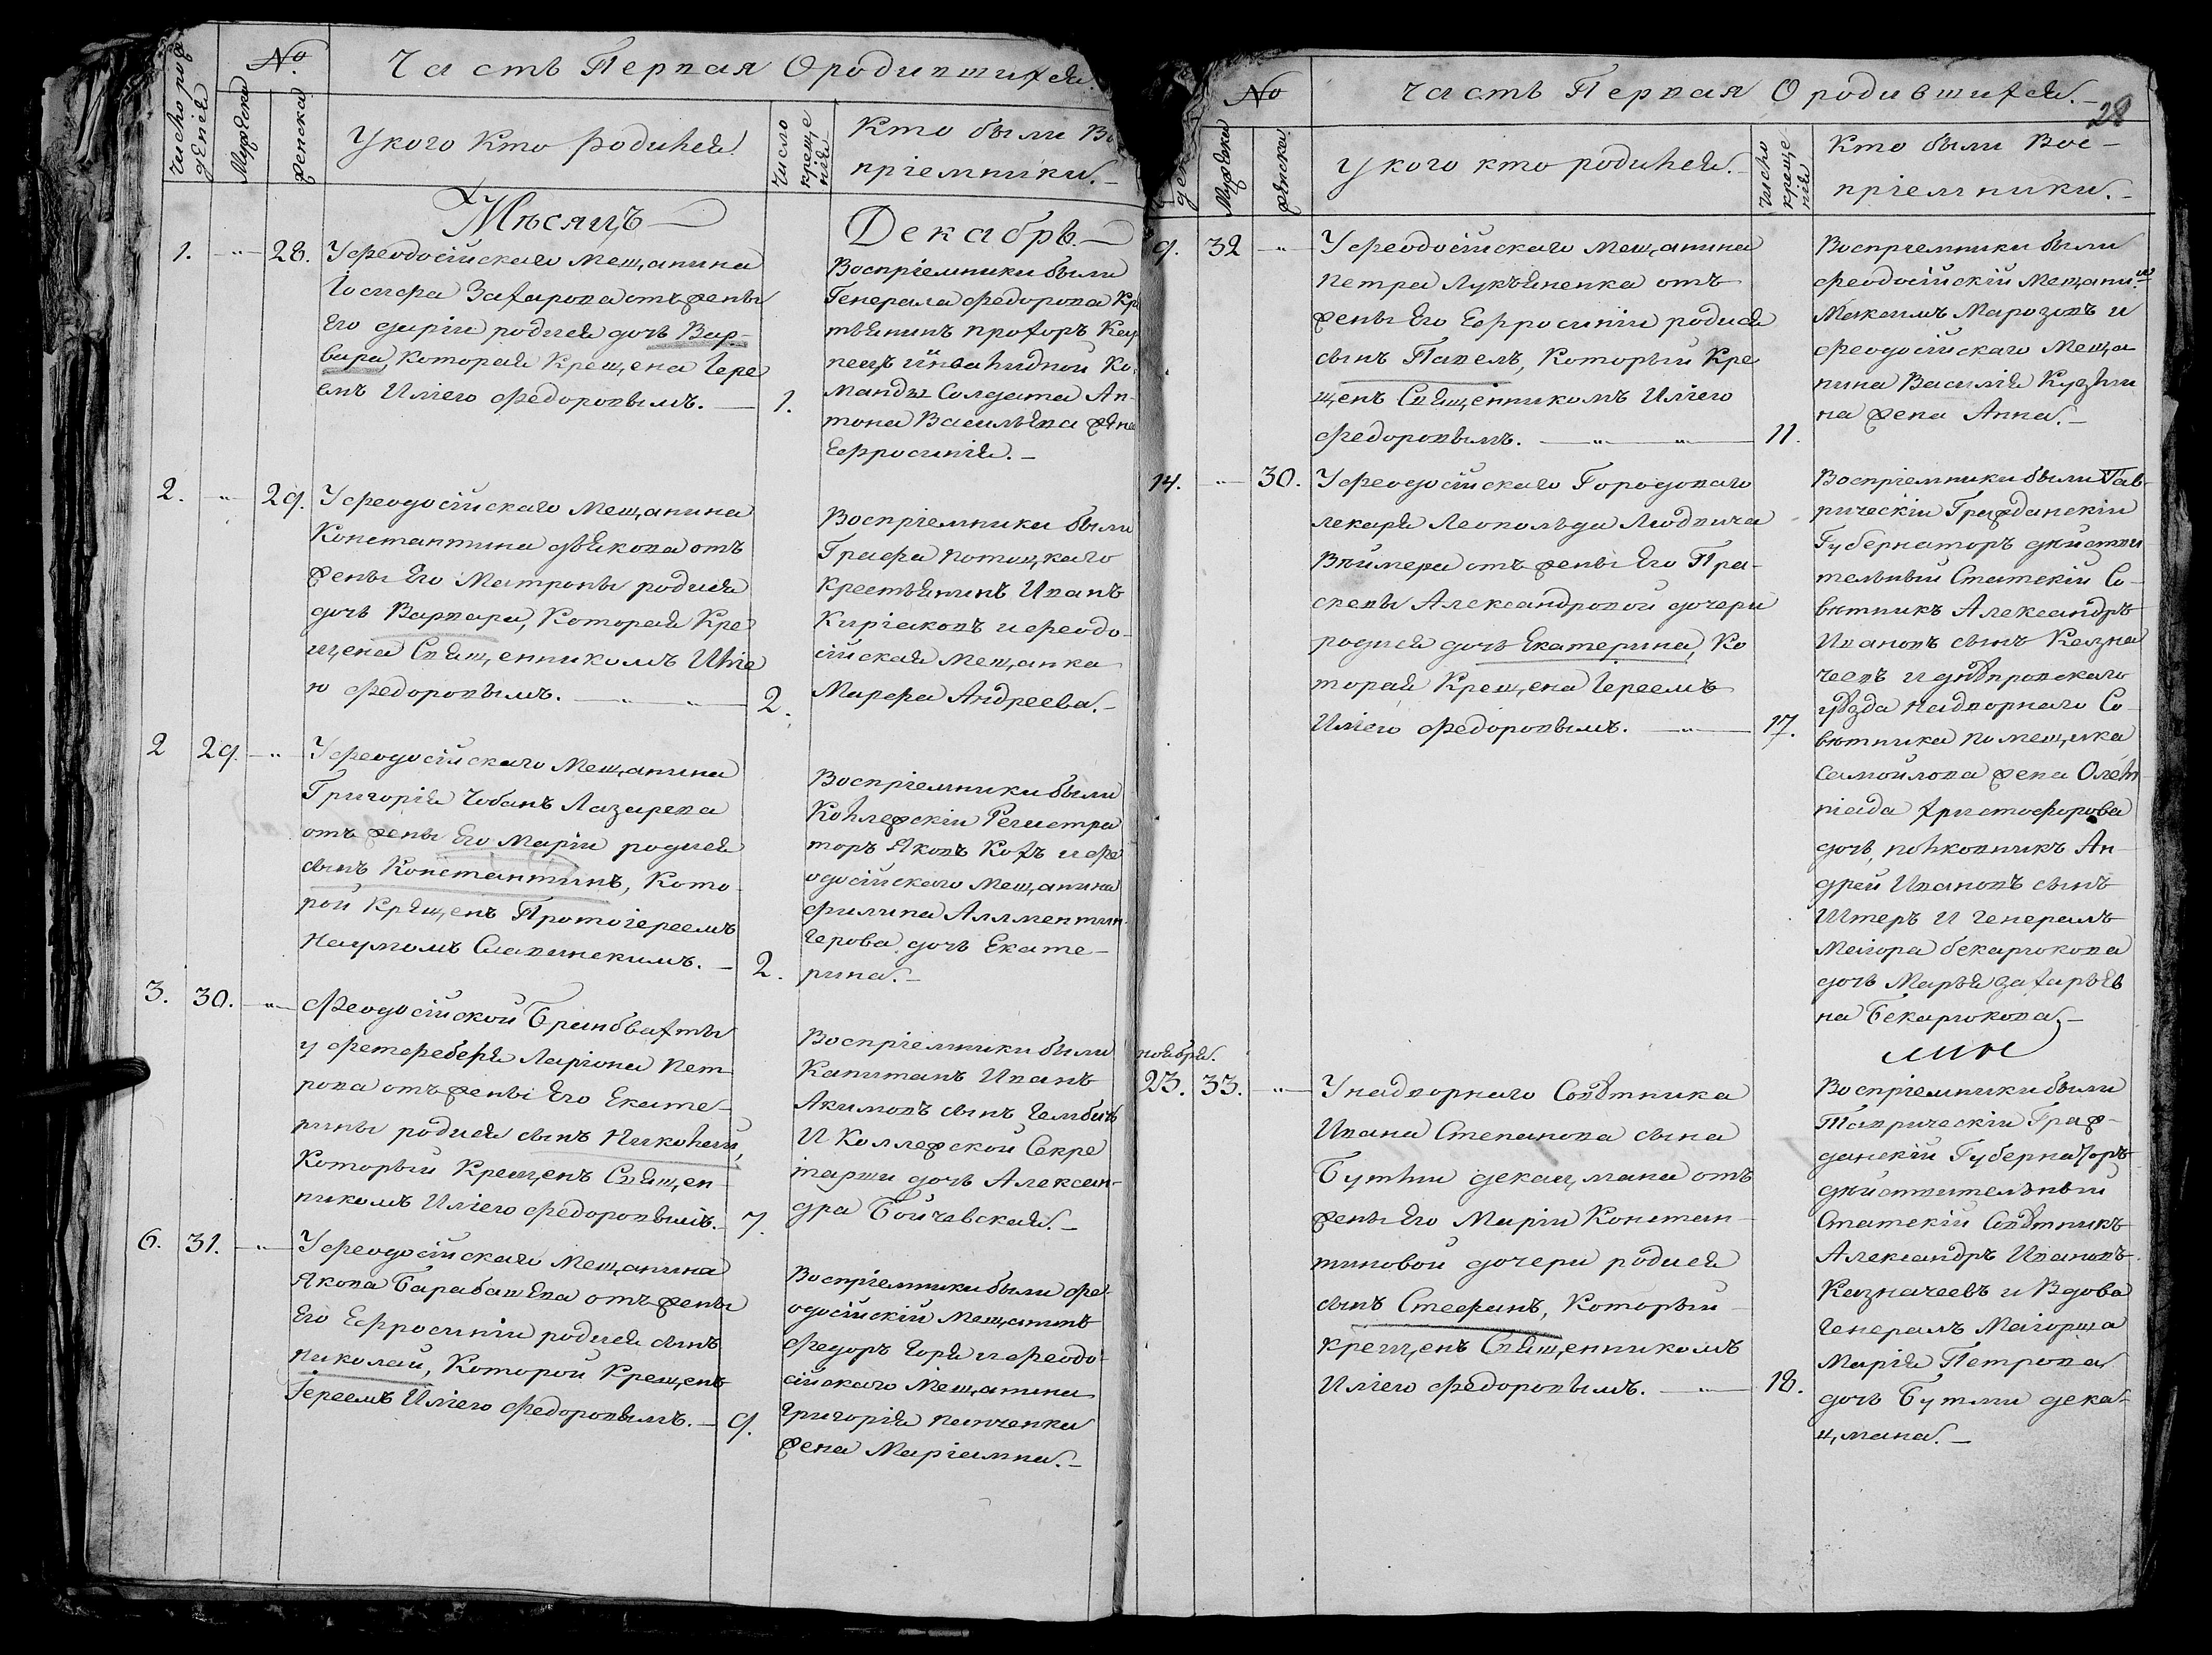 Число рождения
№
Мужска
женска
Часть Первая О родившихся
У кого кто родился
Число крещения
Кто были Во
приемники.
Мѣсяцъ
Декабрь
1. 28.
У феодосійскаго мещанина
Іосифа Захарова отъ жены
Его дарiи родися дочь Вар-
вара, которая крещена Iере
емъ Илiею Федоровымъ. 1.
Воспрiемники были
Генерала Федорова Кр
тьянинъ прохоръ
инвалидной Ко
манды Солдата Ан-
тона Васильева жена
Ефросинiя.
2. 29.
У феодосiйскаго мещанина
Константина дьякова отъ
жены Его Матроны родися
дочь Варвара, Которая Кре
щена Священникомъ Илiе
ю Федоровымъ. 2.
Воспрiемники были
Графа потоцкаго
крестьянинъ Иванъ
Кирiаковъ и феодо-
сiйская мещанка
Марфа Андреева.
2 29.
У феодосiйскаго мещанина
Григорiя Чобанъ Лазарева
отъ жены Его Марiи родися
сынъ Константинъ, Кото
рой Крещенъ Протоiереемъ
Наумомъ Славинскимъ. 2.
Воспрiемники были
Коллежскiи Регистра
торъ Яковъ Кохъ и фе
одосiйскаго мещанина
филипа
дочь Екате-
рина.
3. 30.
Феодосiйской Брантвахты
у фетфебеля Ларiона Пет
рова отъ жены Его Екате-
рины родися сынъ Николай,
Который Крещенъ Священ-
никомъ Илiею Федоровымъ. 7.
Воспрiемники были
Капитанъ Иванъ
Акимовъ сынъ
И Коллежской Секре
тарши дочь Алексан-
дра Бойчевская.
6. 31.
У феодосiйскаго мещанина
Якова Барабашева отъ жены
Его Ефросинiи родися сынъ
николай, Которой Крещенъ
Iереемъ Илiею Федоровымъ. 9.
Воспрiемники были фе
одосiйскiй мещанинъ
Федоръ Горя и феодо-
сiйскаго мещанина
Григорiя панченка
жена Марiамна.
№
Мужска
женска
Часть Первая О родившихся.
28
У кого кто родился.
Число крещения
Кто были Вос-
прiемники.
9. 32
У феодосiйскаго мещанина
Петра Лукьяненка отъ
жены Его Ефросинiи родися
сынъ Павелъ, Который Кре
щенъ Священникомъ Илiею
Федоровымъ. 11.
Воспрiемники были
феодосiйскiй мещанинъ
Максимъ Марозовъ и
феодосiйскаго меща
нина Василiя Кузьми
на жена Анна.
14. 30.
У феодосiйскаго Городоваго
лекаря Леопольда Людвича
отъ жены Его Пра-
сковы Александровой дочери
родися дочь Екатерина, Ко
торая Крещена Iереемъ
Илiею Федоровымъ. 17.
Воспрiемники были Тав-
рическiи Гражданскiи
Губернаторъ дѣистви
тельный Статскiи Со-
вѣтникъ Александръ
Ивановъ сынъ Казна
чеевъ и днѣпровскаго
уѣзда надворнаго Со-
вѣтника помещика
Самойлова жена Олем
пiада христофорова
дочь, полковникъ Ан-
дрей Ивановъ сынъ
Штеръ И Генералъ
Маiора бекарюкова
дочь Марья захарьев
на Бекарюкова.
ноября.
23. 33.
У надворнаго Совѣтника
Ивана Степанова сына
Бутми декацмана отъ
жены Его Марiи Констан-
тиновой дочери родися
сынъ Стефанъ, Который
крещенъ Священникомъ
Илiею Федоровымъ. 18.
Воспрiемники были
Таврическiи Граж-
данскiи Губернаторъ
дѣиствительный
Статскiи Совѣтникъ
Александръ Ивановъ
Казначеевъ и Вдова
Генералъ Маiорша
Марiя Петрова
дочь Бутми дека-
цмана.